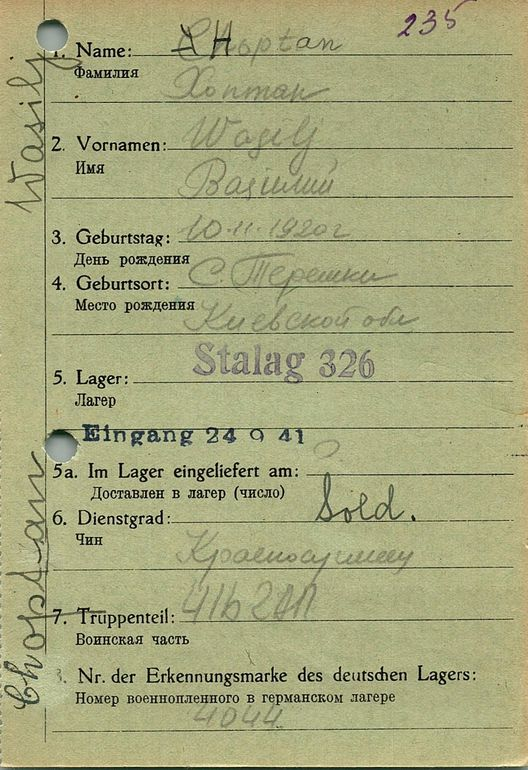 235
1. Name: Choptan
Фамилия
Хоптан
2. Vornamen: Wasilj
Имя
Василий
3. Geburtstag: 10.11.1920 г
День рождения
4. Geburtsort: С. Терешки
Место рождения
Киевской обл
Stalag 326
5. Lager:
Лагер
Eingang 24 9 41
5a. Im Lager eingeliefert am:
Доставлен в лагер (число)
6. Dienstgrad: Sold.
Чин
Красноармеец
7. Truppenteil:
Воинская часть
8. Nr. der Erkennungsmarke des deutschen Lagers:
Номер военнопленного в германском лагере
4044
Choptan Wasilj